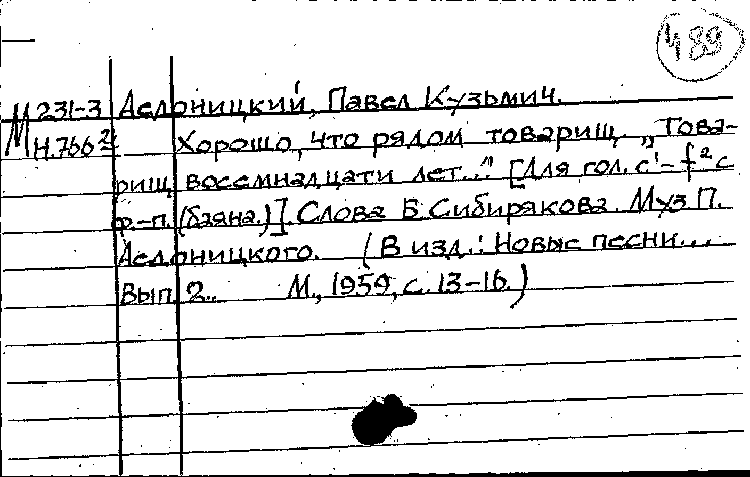 489
М 231-3 Аедоницкий, Павел Кузьмич.
Н.766² Хорошо, что рядом товарищ. „Това-
рищ восемнадцати лет..." [Для гол. c¹-f² с
ф.-п. (баяна.)]. Слова Б. Сибирякова. Муз. П.
Аедоницкого. (В изд.: Новые песни...
Вып. 2.. М., 1959, с. 13-16.)